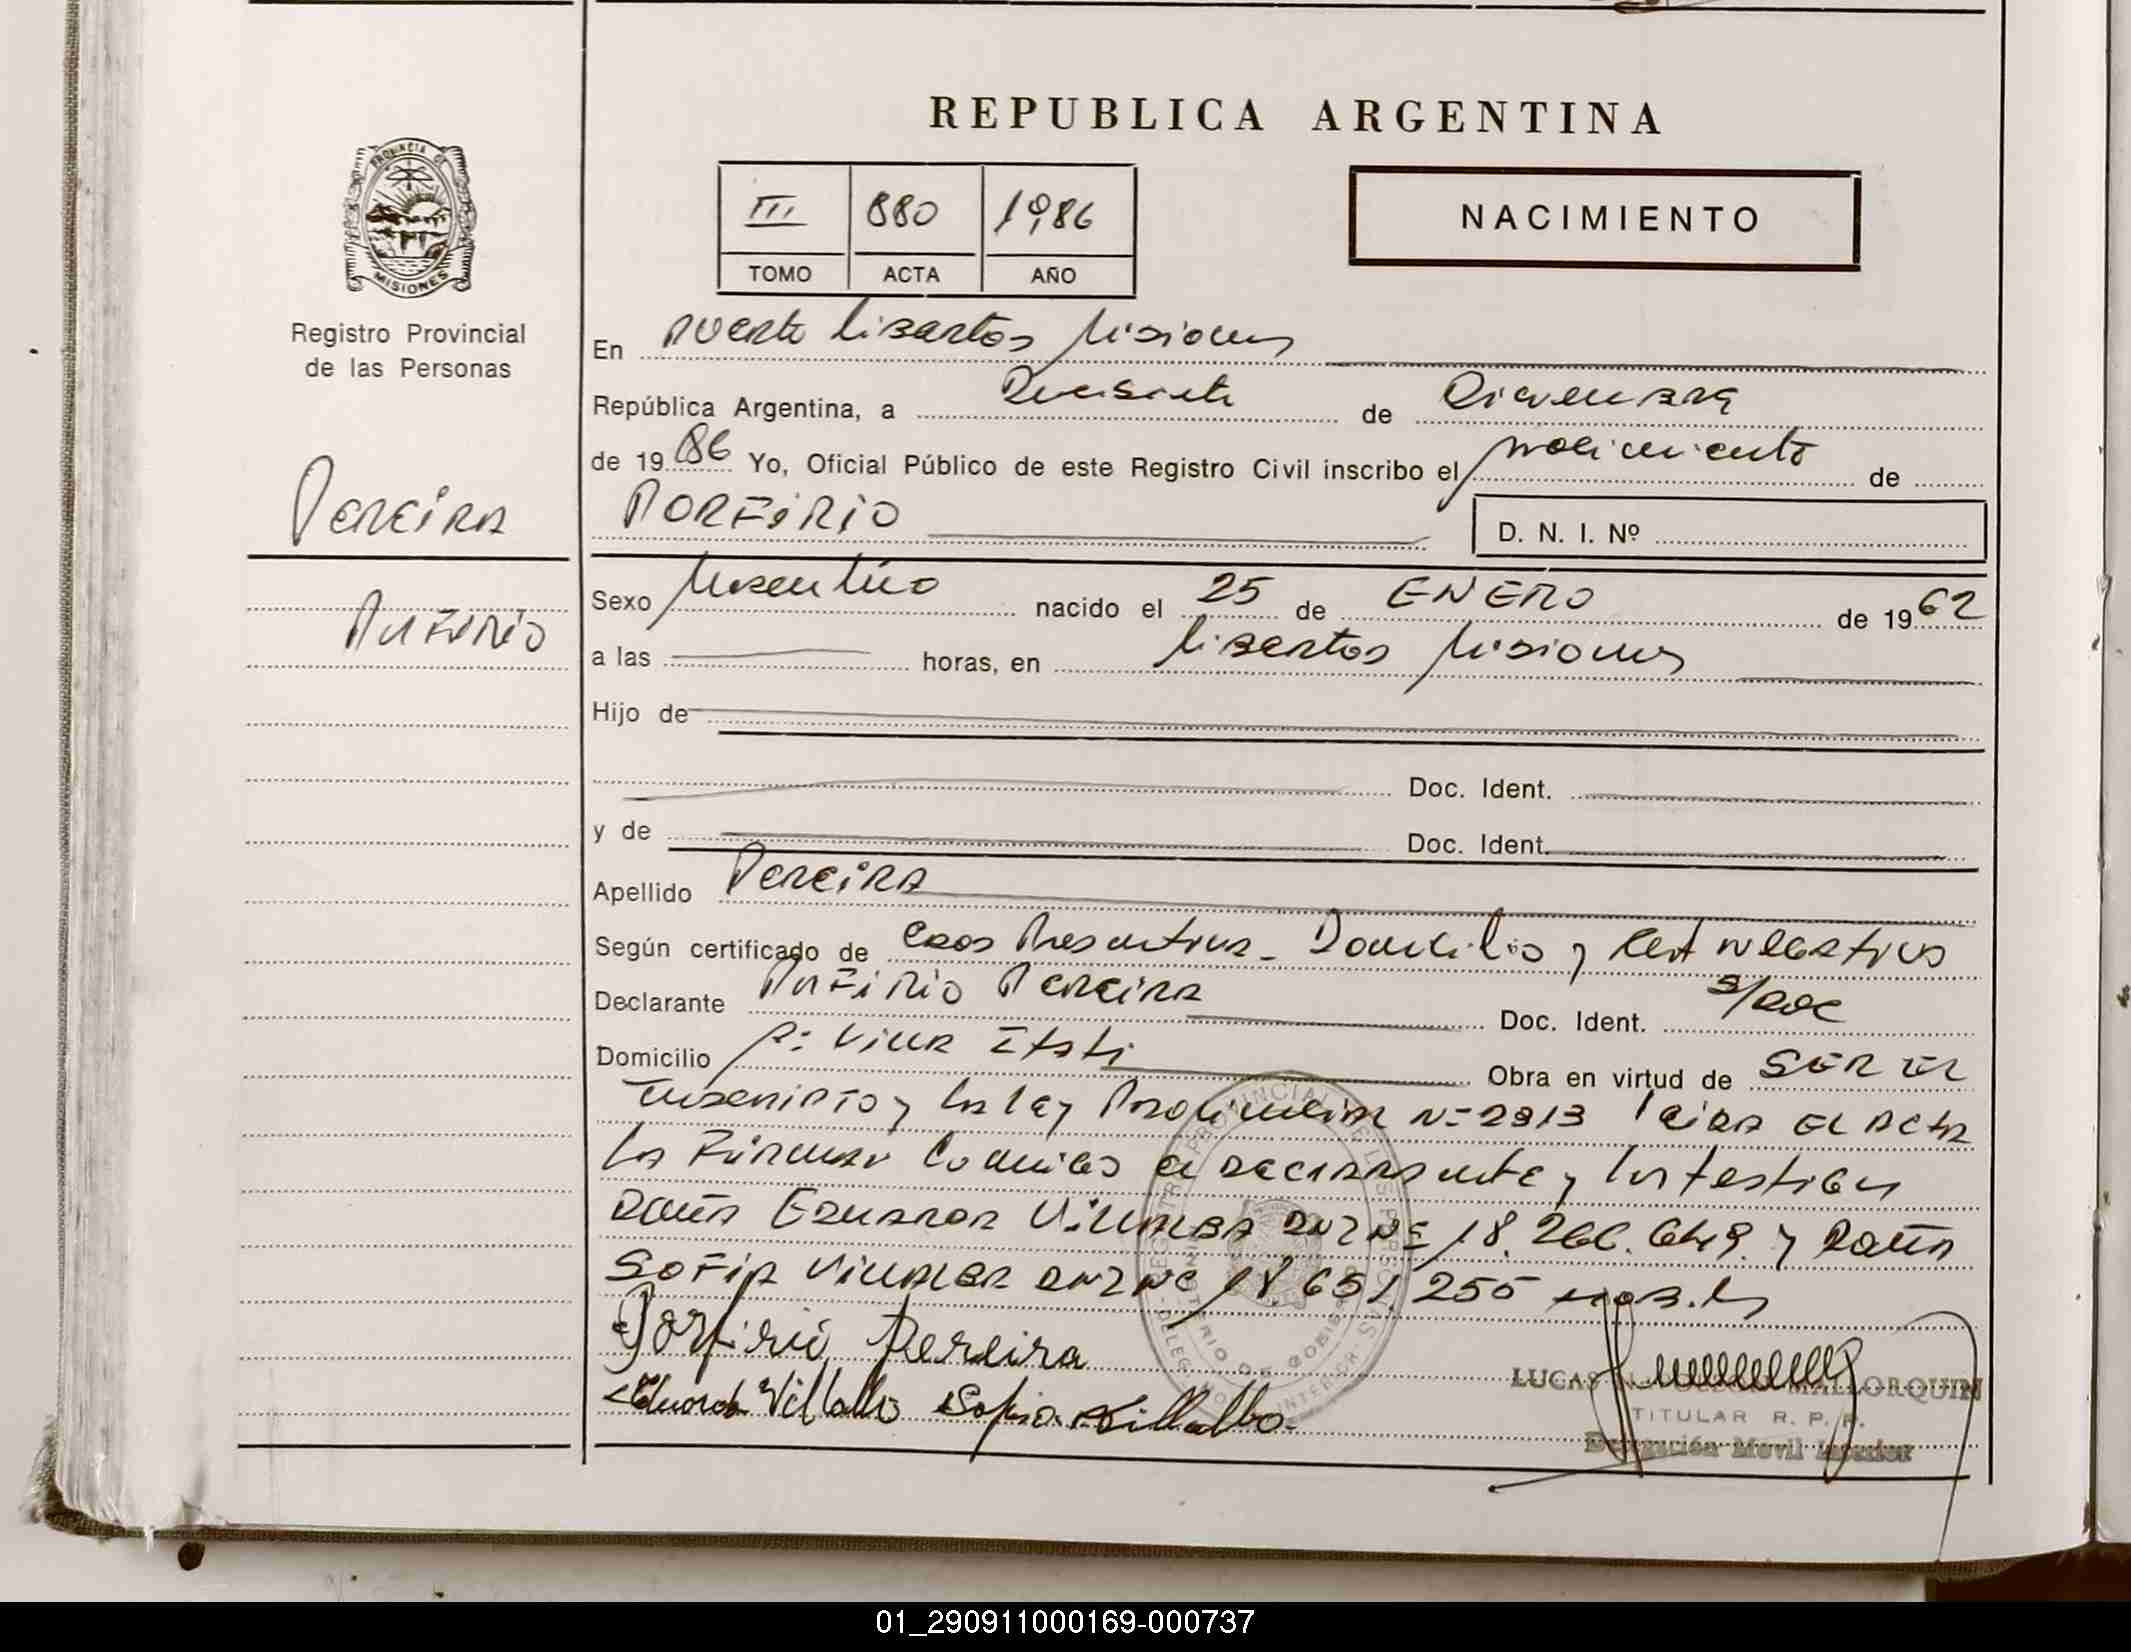 REPUBLICA ARGENTINA
PROVINCIA DE MISIONES
Registro Provincial
de las Personas
III 880 1986
TOMO ACTA AÑO
NACIMIENTO
En Puerto Libertad Misiones
República Argentina, a Diecisiete de Diciembre
de 1986 Yo, Oficial Público de este Registro Civil inscribo el nacimiento de
Pereira
PORFIRIO
D. N. I. Nº
Porfirio
Sexo Masculino nacido el 25 de ENERO de 1962
a las horas, en Libertad Misiones
Hijo de
Doc. Ident.
y de Doc. Ident.
Apellido Pereira
Según certificado de Edad Presuntiva - Domicilio y Cert Negativo
Declarante Porfirio Pereira Doc. Ident. s/doc
Domicilio Villa Itati Obra en virtud de SER EL
Inscripto y la ley Provincial Nº 2313 leida EL Acta
La Firman Conmigo el declarante y los testigos
Doña Eduarda Villalba DNI Nº 18.266.649 y Doña
SOFIA Villalba DNI Nº 18.651.255
Porfirio Pereira
Eduarda Villalba Sofia Villalba
LUCAS MALLORQUIN
TITULAR R. P. P.
Delegación Movil Interior
01_290911000169-000737